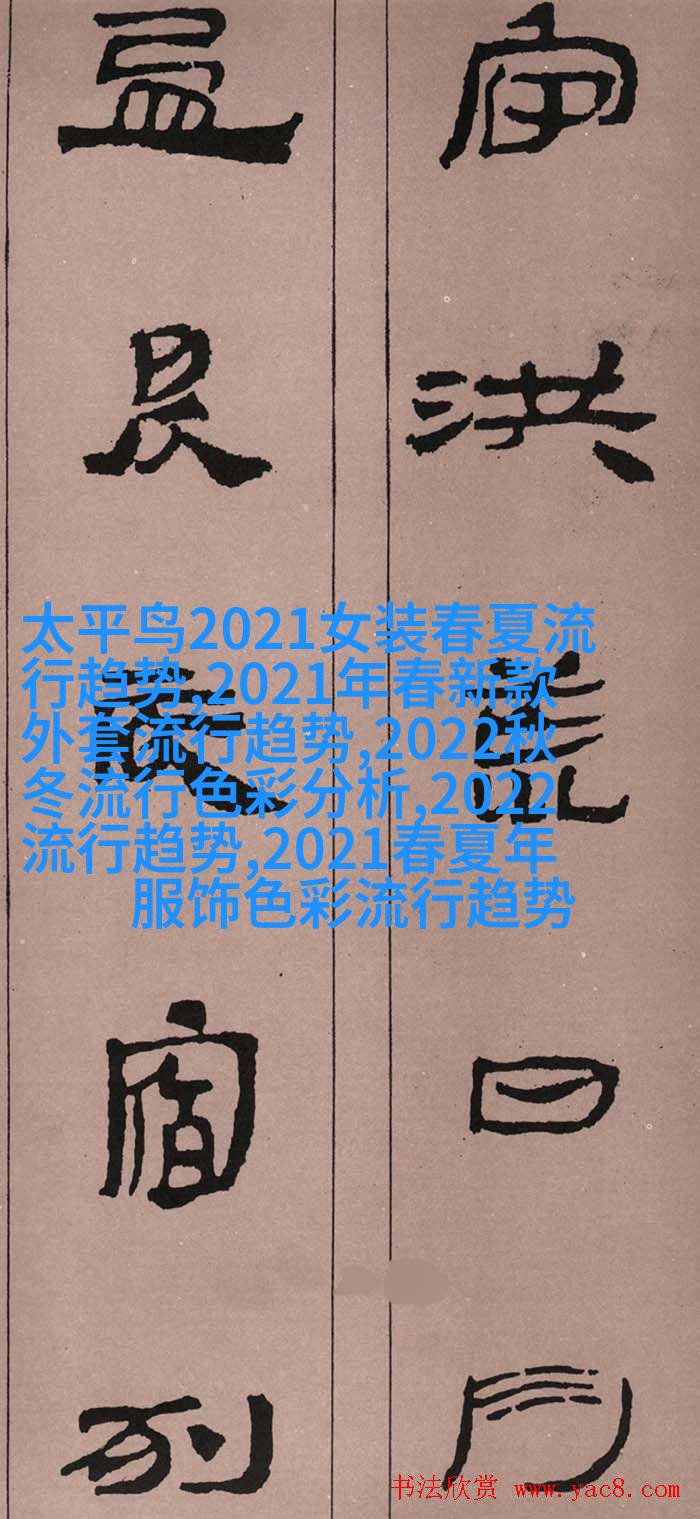 宙洪荒日月
盈昃辰宿列
太平鸟2021女装春夏流
行趋势,2021年春新款
外套流行趋势,2022秋
冬流行色彩分析,2022
流行趋势,2021春夏年
服饰色彩流行趋势
书法欣赏 www.yac8.com